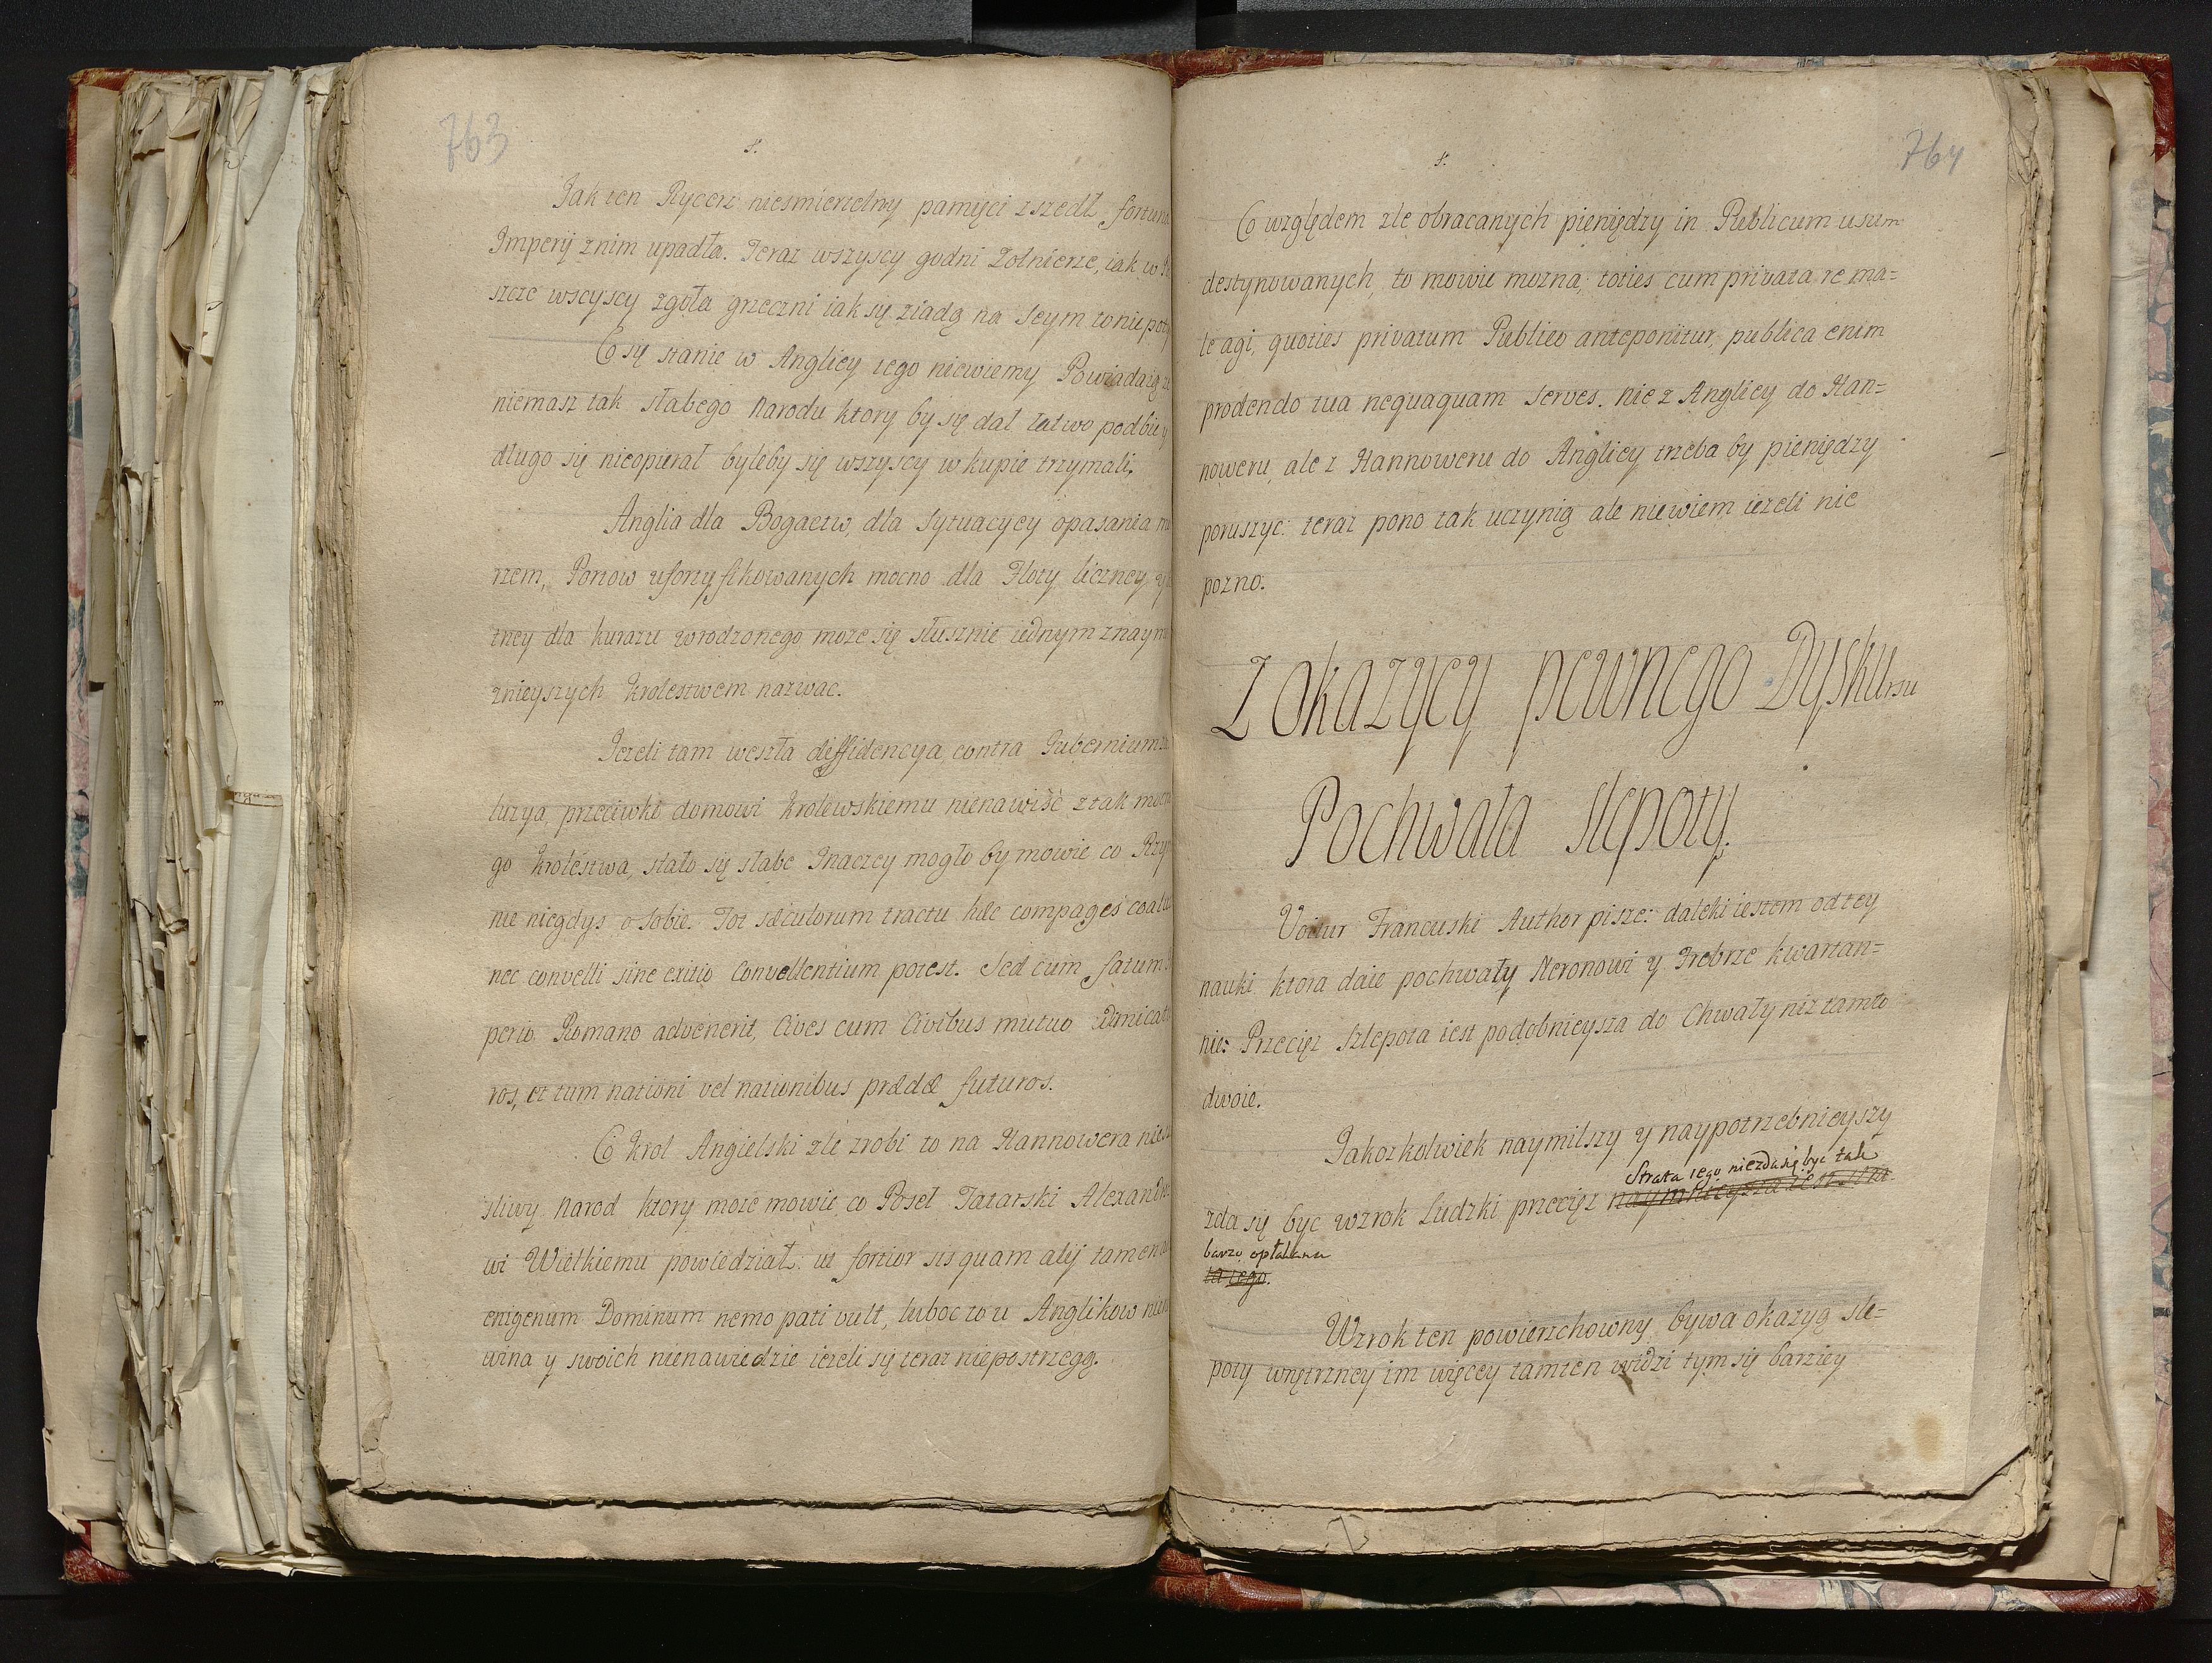 763
s.
Jak ten Rycerz niesmiertelny pamięci zszedł, fortuna
Imperij znim upadła. Teraz wszyscy godni Zołnierze, iak w
szcze wscyscy zgoła grzeczni iak się ziadą na Seym to nie
Co się stanie w Anglicy tego niewiemy Powiadaią
niemasz tak słabego Narodu ktory by się dał łatwo podbić y
długo się nieopierał byleby się wszyscy w kupie trzymali.
Anglia dla Bogactw, dla sytuacycy opasania
rzem, Portow ufortyfikowanych mocno dla Floty liczney
trey dla kurazu wrodzonego moze się słusznie iednym z
znieyszych krolestwem nazwac.
Jezeli tam weszła diffidencya contra Gubernium
luzya, przeciwko domowi krolewskiemu nienawiść z tak
go krolestwa, stało się słabe Inaczey mogło by mowic co Rzy
nie niegdys o sobie. Tot sæculorum tractu hæc compages
nec convelli sine exitio Convellentium potest. Sed cum fatum
perio Romano advenerit, Cives cum Civibus mutuo dimicatu
ros, et tum nationi vel nationibus prædæ futuros.
Co krol Angielski zle zrobi to na Hannowera
sliwy Narod ktory moze mowic, co Poseł Tatarski Alexandro
wi Wielkiemu powiedział: ut fortior sis quam alij tamen
enigenum Dominum nemo pati vult, luboc to u Anglikow
wina y swoich nienawiedzie iezeli się teraz niepostrzegą.
764
s.
Co względem zle obracanych pieniędzy in Publicum usum
destynowanych, to mowic mozna; toties cum privata re ma=
le agi, quoties privatum Publico anteponitur, publica enim
prodendo tua nequaquam serves. nie z Anglicy do Han=
noweru, ale z Hannoweru do Anglicy trzeba by pieniędzy
poruszyc: teraz pono tak uczynią ale niewiem iezeli nie
pozno.
Z okazycy pewnego Dyskursu
Pochwała slepoty.
Voitur Francuski Author pisze: daleki iestem od tey
nauki ktora daie pochwały Neronowi y Febrze kwartan=
nie: Przecięz Szlepota iest podobnieysza do Chwały niz tamto
dwoie.
Jakozkolwiek naymilszy y naypotrzebnieyszy
Strata iego niezda się być tak
zda się byc wzrok Ludzki przecięz naymnieysza iest stra
barzo opłakana
ta iego.
Wzrok ten powierzchowny bywa okazyą sle=
poty wnętrzney im więcey tamten widzi tym się barziey